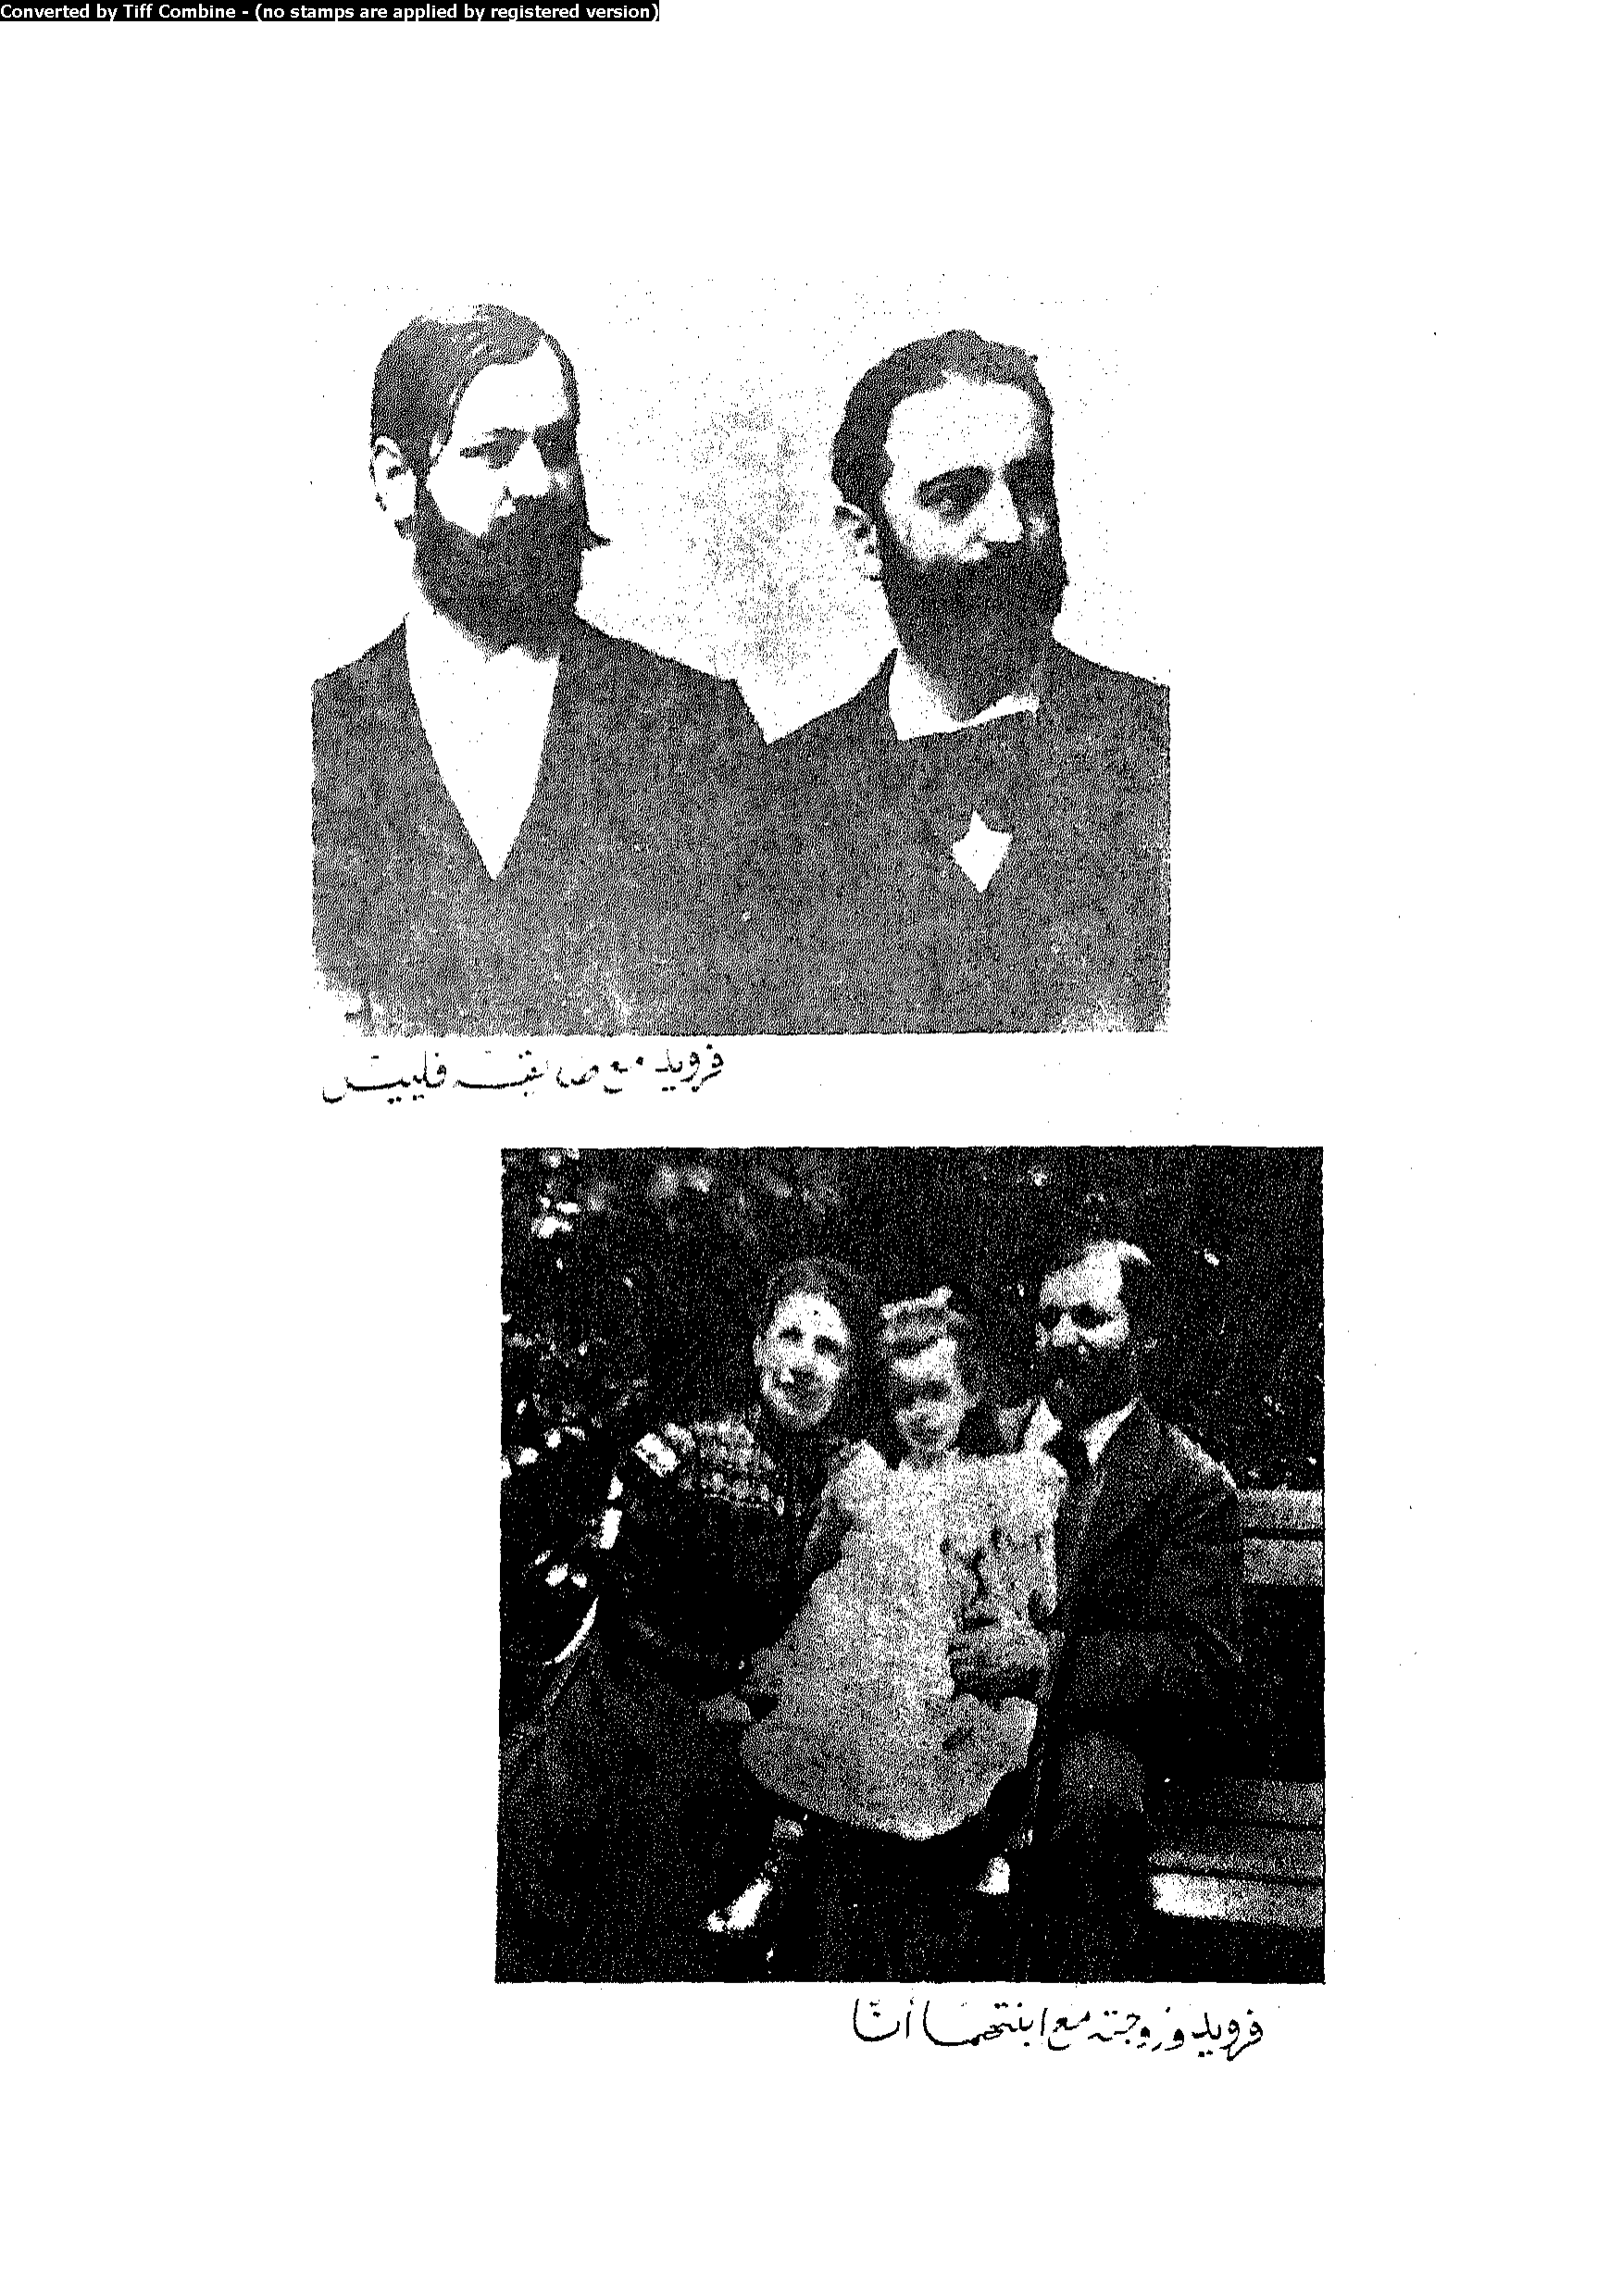 Converted by Tiff Combine - (no stamps are applied by registered version)
فرويد مع صديقه فلييس
فرويد وزوجته مع ابنتهما أنّا